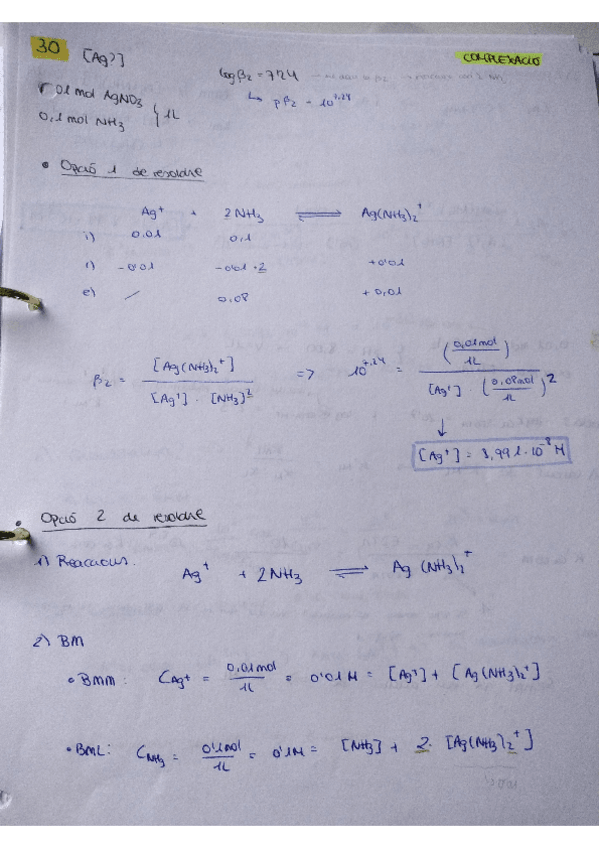 30 [Ag?] COMPLEXACIÓ
logβ₂ = 7'24
↳ pβ₂ = 10^7.24
0.1 mol AgNO₃
0,1 mol NH₃ } 1L
• Opció 1 de resoldre
Ag⁺ + 2NH₃ ⇌ Ag(NH₃)₂⁺
i) 0.01 0,1
r) -0'01 -0'01·2 +0'01
e) / 0,08 +0,01
β₂ = [Ag(NH₃)₂⁺] / [Ag⁺]·[NH₃]² => 10^7.24 = (0,01mol / 1L) / [Ag⁺]·(0,08mol / 1L)²
↓
[Ag⁺] = 8,991·10⁻⁸ M
• Opció 2 de resoldre
1) Reaccions. Ag⁺ + 2NH₃ ⇌ Ag(NH₃)₂⁺
2) BM
• BMM: C_Ag⁺ = 0,01mol / 1L = 0'01M = [Ag⁺] + [Ag(NH₃)₂⁺]
• BML: C_NH₃ = 0'1mol / 1L = 0'1M = [NH₃] + 2·[Ag(NH₃)₂⁺]